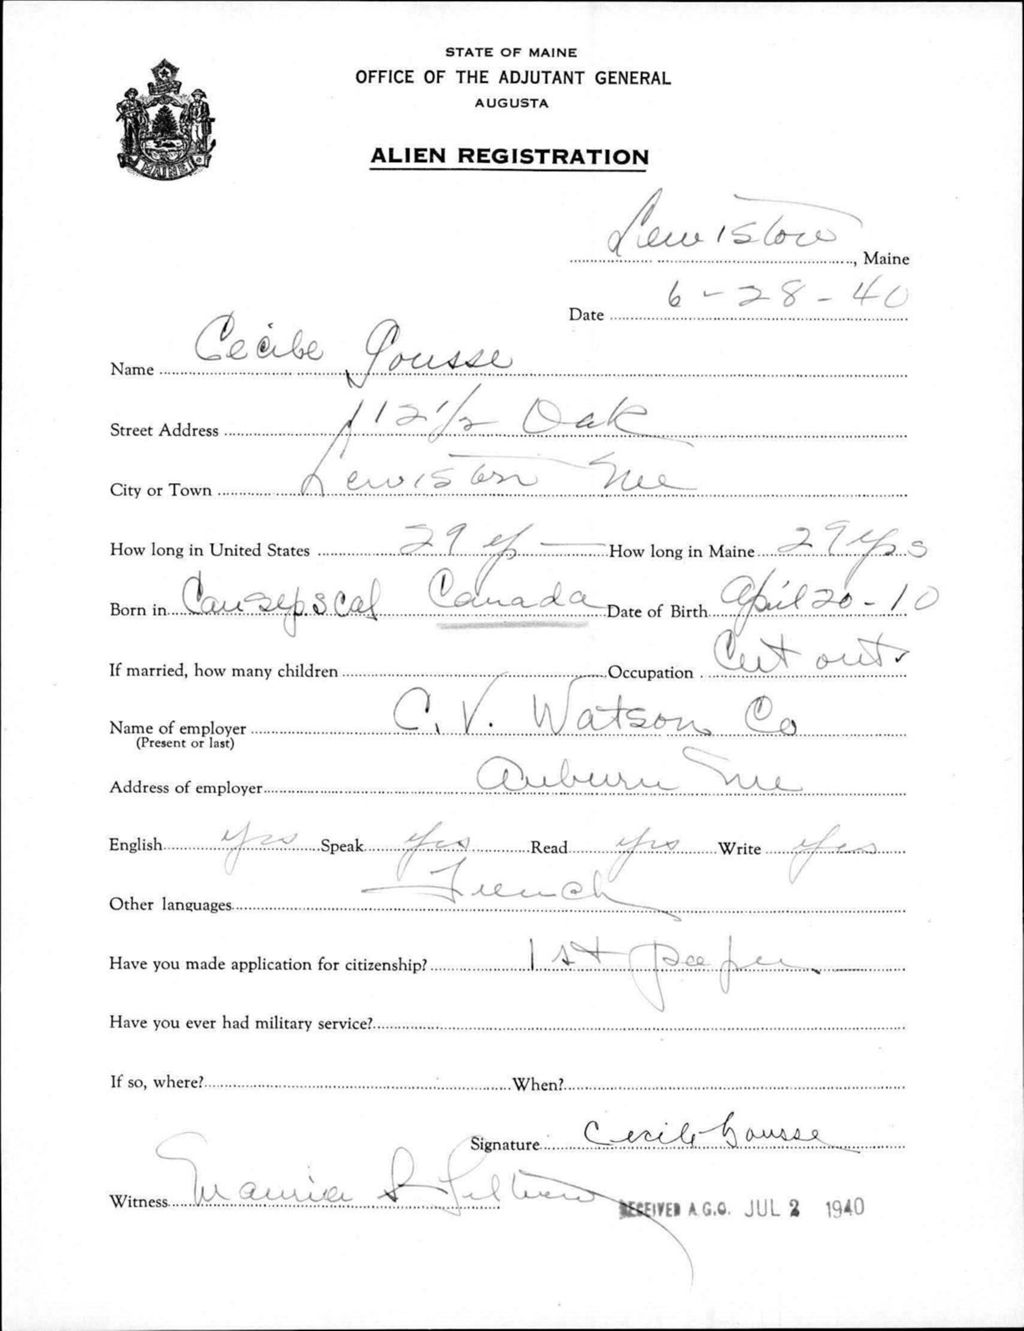 STATE OF MAINE
OFFICE OF THE ADJUTANT GENERAL
AUGUSTA
ALIEN REGISTRATION
MAINE
Lewiston, Maine
Date 6-28-40
Name Cecile Gousse
Street Address 112 1/2 Oak
City or Town Lewiston Me
How long in United States 29 yrs How long in Maine 29 yrs
Born in Causepscal Canada Date of Birth April 20-10
If married, how many children Occupation Cut out
Name of employer C. V. Watson Co
(Present or last)
Address of employer Auburn Me
English yes Speak yes Read yes Write yes
Other languages French
Have you made application for citizenship? 1st paper
Have you ever had military service?
If so, where? When?
Signature Cecile Gousse
Witness S
RECEIVED A.G.O. JUL 2 1940